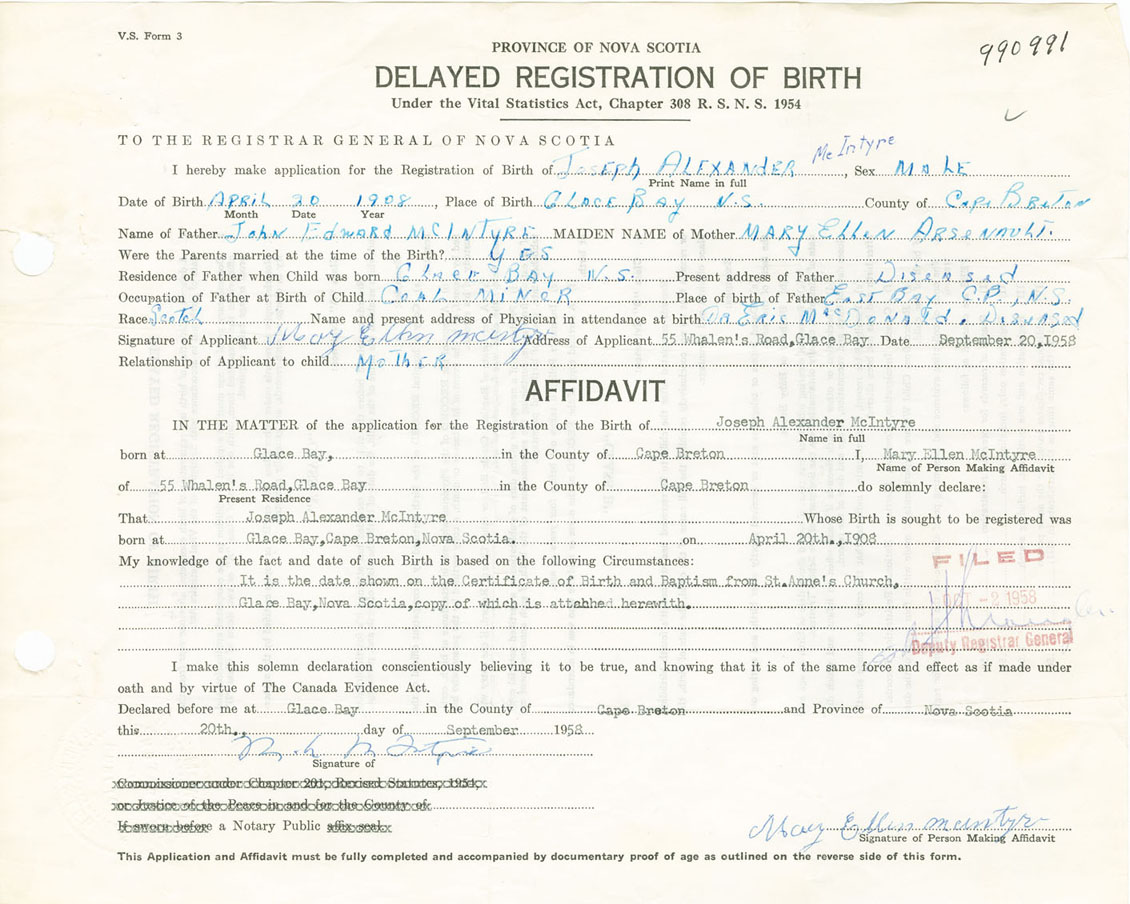 V.S. Form 3
990991
PROVINCE OF NOVA SCOTIA
DELAYED REGISTRATION OF BIRTH
Under the Vital Statistics Act, Chapter 308 R. S. N. S. 1954
TO THE REGISTRAR GENERAL OF NOVA SCOTIA
McIntyre
I hereby make application for the Registration of Birth of Joseph ALEXANDER, Sex MALE
Print Name in full
Date of Birth APRIL 20 1908, Place of Birth GLACE BAY N.S. County of Cape BRETON
Month Date Year
Name of Father John Edward MCINTYRE MAIDEN NAME of Mother MARY Ellen ARSENAULT.
Were the Parents married at the time of the Birth? YES
Residence of Father when Child was born GLACE BAY N.S. Present address of Father Diseased
Occupation of Father at Birth of Child COAL MINER Place of birth of Father East Bay C.B., N.S.
Race Scotch Name and present address of Physician in attendance at birth Dr Eric McDonald. Diseased
Signature of Applicant Mary Ellen McIntyre Address of Applicant 55 Whalen's Road,Glace Bay Date September 20,1958
Relationship of Applicant to child MOTHER
AFFIDAVIT
IN THE MATTER of the application for the Registration of the Birth of Joseph Alexander McIntyre
Name in full
born at Glace Bay, in the County of Cape Breton I, Mary Ellen McIntyre
Name of Person Making Affidavit
of 55 Whalen's Road,Glace Bay in the County of Cape Breton do solemnly declare:
Present Residence
That Joseph Alexander McIntyre Whose Birth is sought to be registered was
born at Glace Bay,Cape Breton,Nova Scotia. on April 20th.,1908
My knowledge of the fact and date of such Birth is based on the following Circumstances:
It is the date shown on the Certificate of Birth and Baptism from St.Anne's Church,
Glace Bay,Nova Scotia,copy of which is attahhed herewith.
FILED
OCT -2 1958
Deputy Registrar General
I make this solemn declaration conscientiously believing it to be true, and knowing that it is of the same force and effect as if made under
oath and by virtue of The Canada Evidence Act.
Declared before me at Glace Bay in the County of Cape Breton and Province of Nova Scotia
this 20th., day of September 1958
Signature of
Commissioner under Chapter 201, Revised Statutes, 1954,
or Justice of the Peace in and for the County of
If sworn before a Notary Public affix seal.
Mary Ellen McIntyre
Signature of Person Making Affidavit
This Application and Affidavit must be fully completed and accompanied by documentary proof of age as outlined on the reverse side of this form.